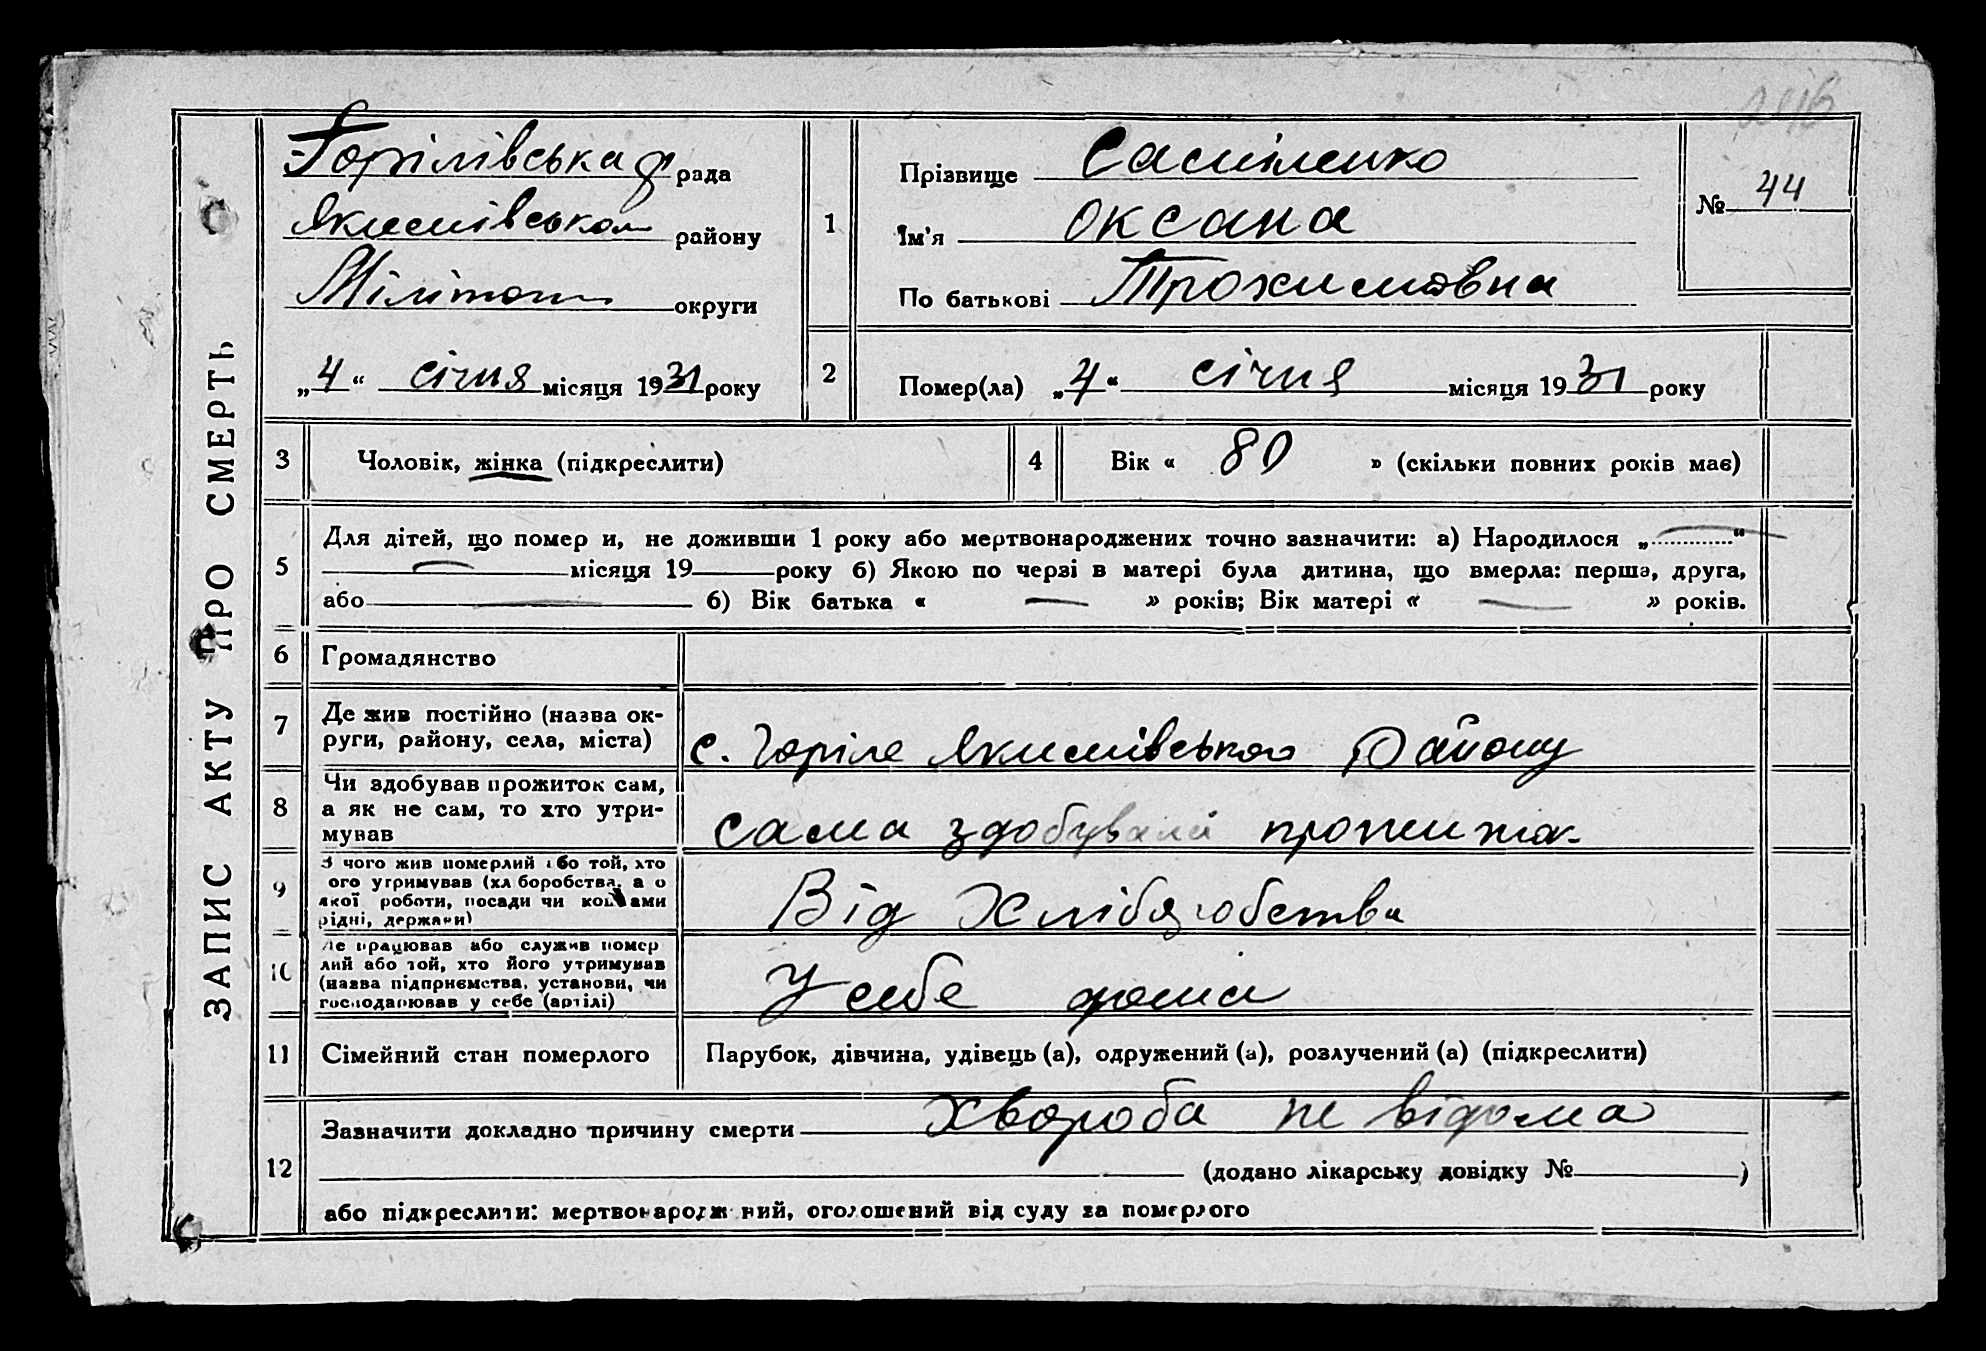 246
ЗАПИС АКТУ ПРО СМЕРТЬ
Горілівська рада
Якимівського району
Меліто округи
„4“ січня місяця 1931 року
1
Прізвище
Ім'я Оксана
По батькові Трохимовна
№ 44
2
Помер(ла) „4“ січня місяця 1931 року
3 Чоловік, жінка (підкреслити)
4 Вік « 80 » (скільки повних років має)
5
Для дітей, що помер и, не доживши 1 року або мертвонароджених точно зазначити: а) Народилося „ “
місяця 19 року б) Якою по черзі в матері була дитина, що вмерла: перша, друга,
або б) Вік батька « » років; Вік матері « » років.
6 Громадянство
7
Де жив постійно (назва ок-
руги, району, села, міста)
с. Горіле Якимівського Району
8
Чи здобував прожиток сам,
а як не сам, то хто утри-
мував
сама здобувала прожиток
9
З чого жив померлий або той, хто
ого утримував (хл боробства, а о
якої роботи, посади чи коштами
рідні, держави)
Від Хліборобства
10
Де працював або служив помер
лий або той, хто його утримував
(назва підприємства, установи, чи
господарював у себе (артілі)
У себе дома
11 Сімейний стан померлого
Парубок, дівчина, удівець (а), одружений (а), розлучений (а) (підкреслити)
12
Зазначити докладно причину смерти хвороба не відома
(додано лікарську довідку № )
або підкреслити: мертвонародж ний, оголошений від суду за померлого